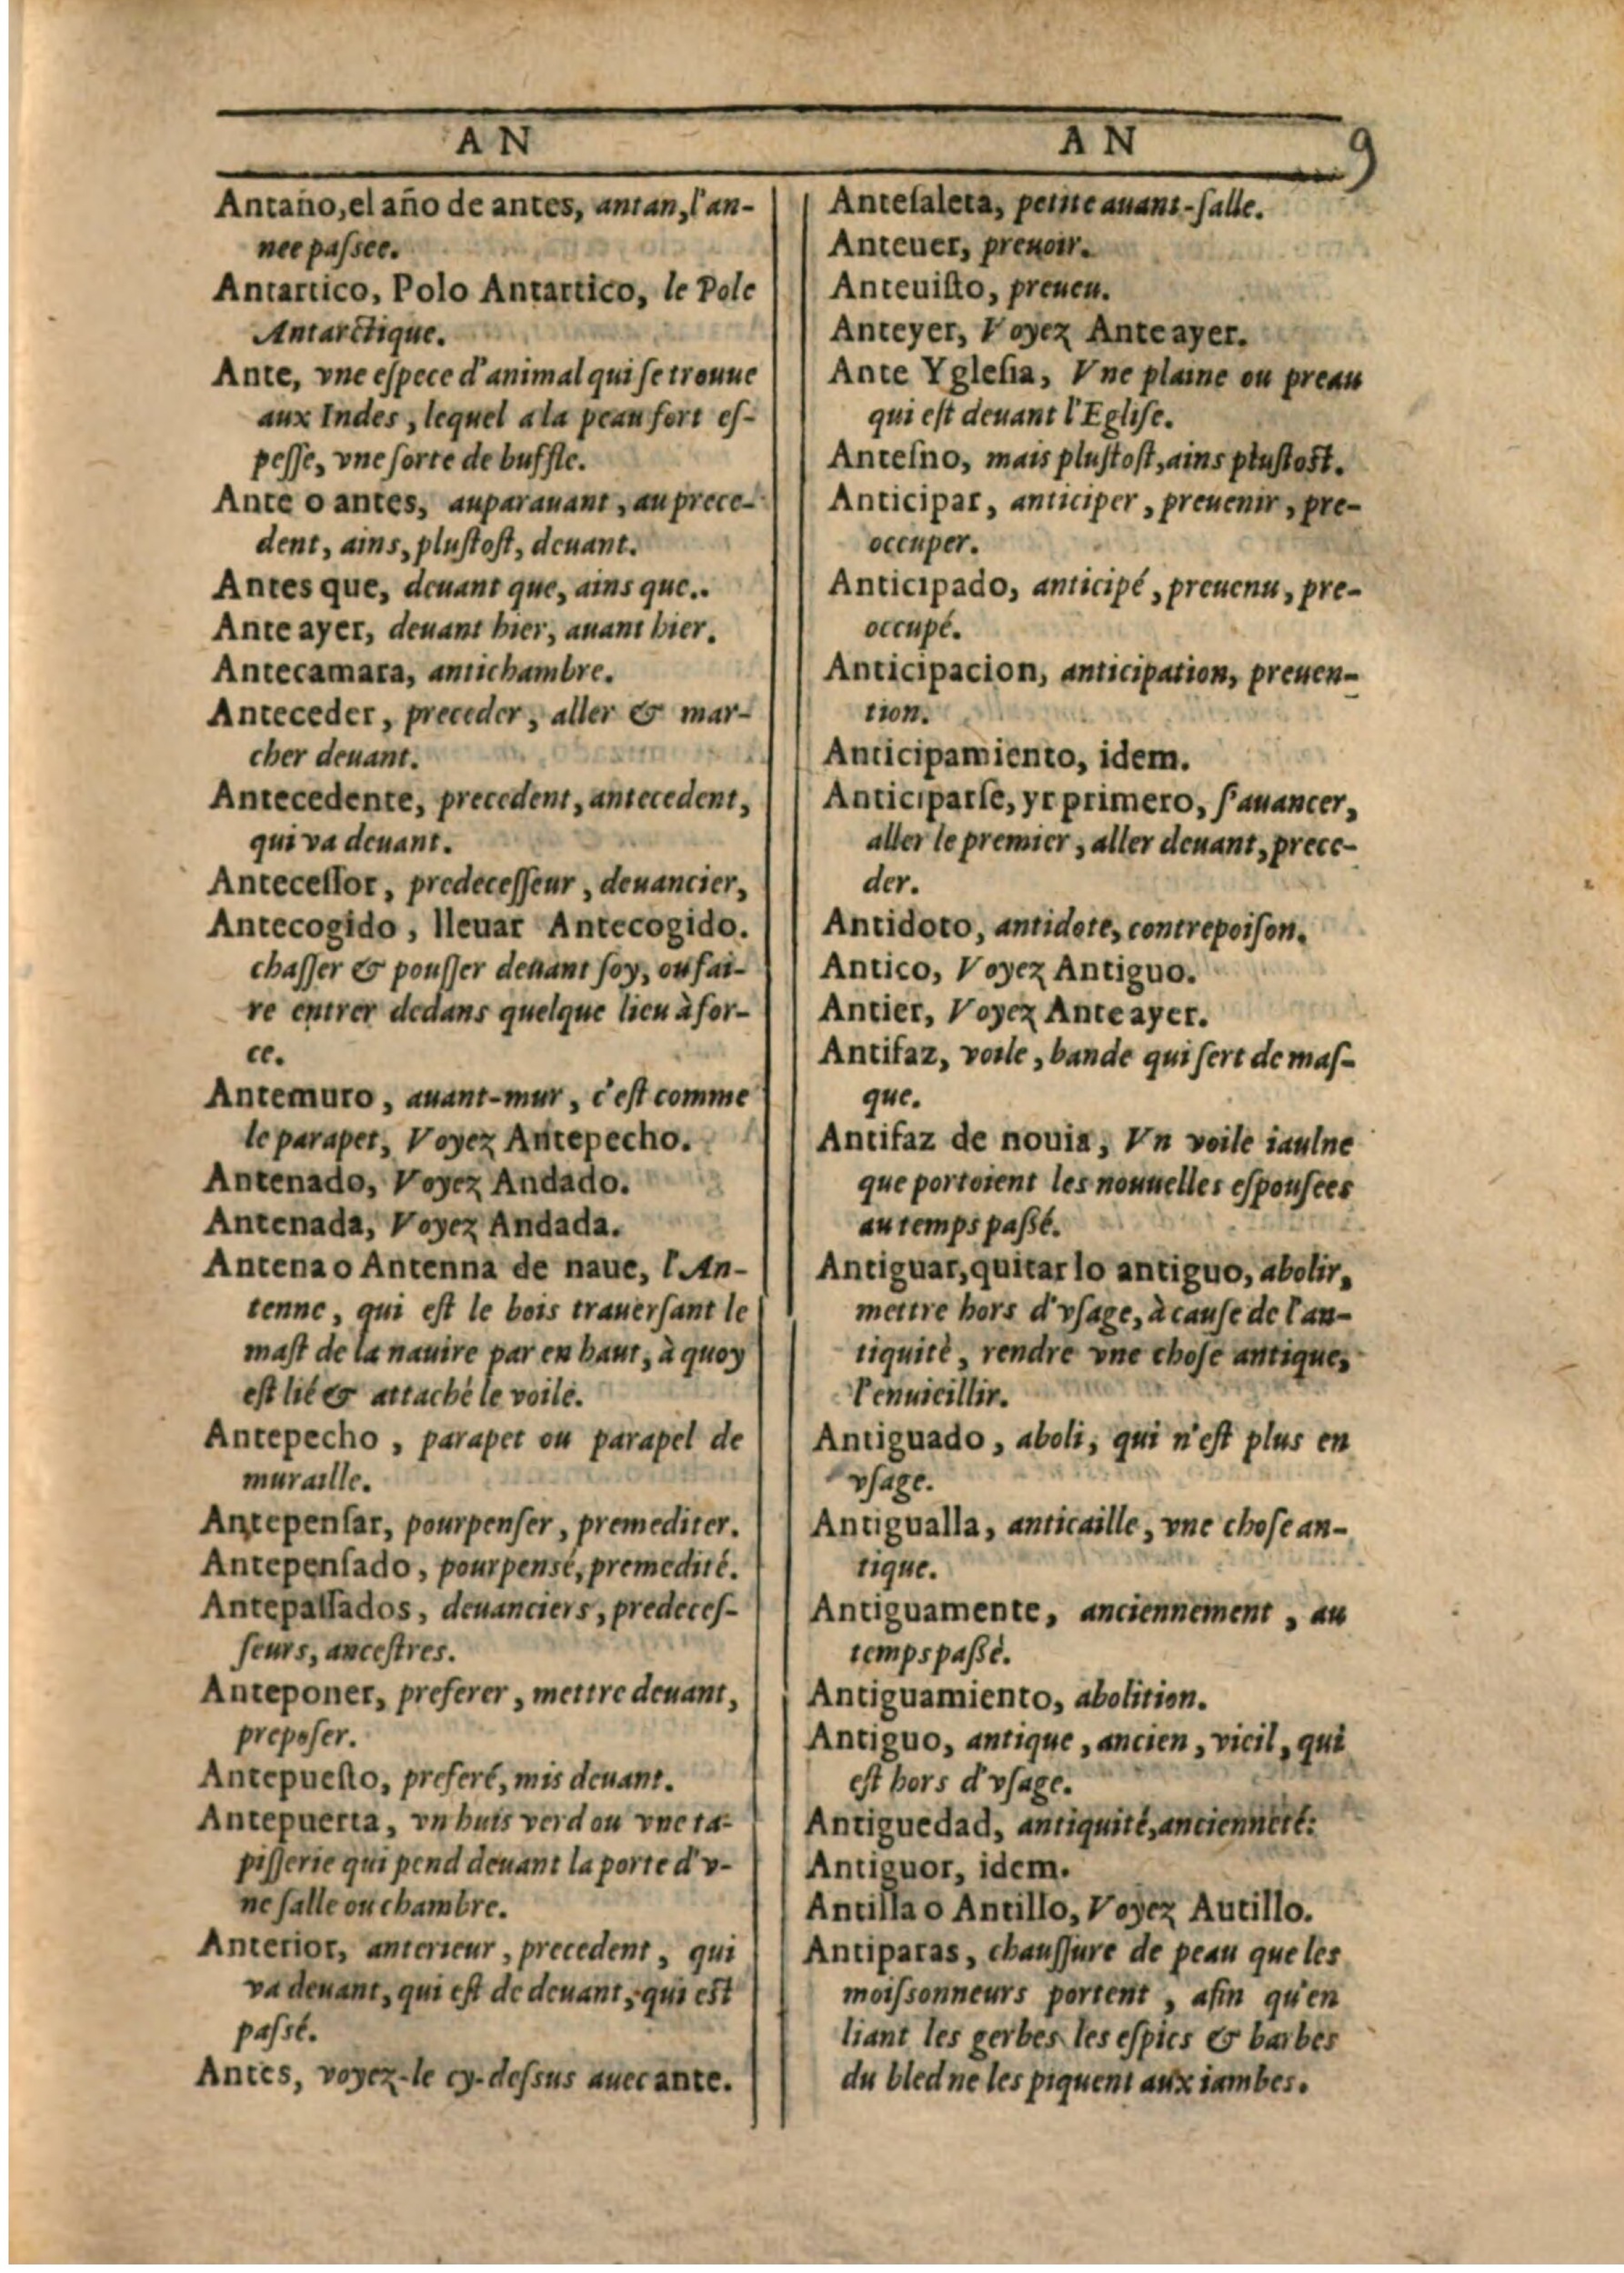 AN
Antaño, el año de antes, antan, l'an-
nee paſsee.
Antartico, Polo Antartico, le Pole
Antarctique.
Ante, vne eſpece d'animal qui ſe trouue
aux Indes, lequel a la peau fort eſ-
peſſe, vne ſorte de buffle.
Ante o antes, auparauant, au prece-
dent, ains, pluſtoſt, deuant.
Antes que, deuant que, ains que..
Ante ayer, deuant hier, auant hier.
Antecamara, antichambre.
Anteceder, preceder, aller & mar-
cher deuant.
Antecedente, precedent, antecedent,
qui va deuant.
Anteceſſor, predeceſſeur, deuancier,
Antecogido, lleuar Antecogido.
chaſſer & pouſſer deuant ſoy, ou fai-
re entrer dedans quelque lieu à for-
ce.
Antemuro, auant-mur, c'eſt comme
le parapet, Voyez Antepecho.
Antenado, Voyez Andado.
Antenada, Voyez Andada.
Antena o Antenna de naue, l'An-
tenne, qui eſt le bois trauerſant le
maſt de la nauire par en haut, à quoy
eſt lié & attaché le voile.
Antepecho, parapet ou parapel de
muraille.
Antepenſar, pourpenſer, premediter.
Antepenſado, pourpensé, premedité.
Antepaſſados, deuanciers, predeceſ-
ſeurs, anceſtres.
Anteponer, preferer, mettre deuant,
prepoſer.
Antepueſto, preferé, mis deuant.
Antepuerta, vn huis verd ou vne ta-
piſſerie qui pend deuant la porte d'v-
ne ſalle ou chambre.
Anterior, anterieur, precedent, qui
va deuant, qui eſt de deuant, qui eſt
paſsé.
Antes, voyez-le cy-deſsus auec ante.
AN 9
Anteſaleta, petite auant-ſalle.
Anteuer, preuoir.
Anteuiſto, preueu.
Anteyer, Voyez Ante ayer.
Ante Ygleſia, Vne plaine ou preau
qui eſt deuant l'Egliſe.
Anteſno, mais pluſtoſt, ains pluſtoſt.
Anticipar, anticiper, preuenir, pre-
occuper.
Anticipado, anticipé, preuenu, pre-
occupé.
Anticipacion, anticipation, preuen-
tion.
Anticipamiento, idem.
Anticiparſe, yr primero, ſ'auancer,
aller le premier, aller deuant, prece-
der.
Antidoto, antidote, contrepoiſon.
Antico, Voyez Antiguo.
Antier, Voyez Ante ayer.
Antifaz, voile, bande qui ſert de maſ-
que.
Antifaz de nouia, Vn voile iaulne
que portoient les nouuelles eſpouſees
au temps paſſé.
Antiguar, quitar lo antiguo, abolir,
mettre hors d'vſage, à cauſe de l'an-
tiquité, rendre vne choſe antique,
l'enuieillir.
Antiguado, aboli, qui n'eſt plus en
vſage.
Antigualla, anticaille, vne choſe an-
tique.
Antiguamente, anciennement, au
temps paſſé.
Antiguamiento, abolition.
Antiguo, antique, ancien, vieil, qui
eſt hors d'vſage.
Antiguedad, antiquité, ancienneté:
Antiguor, idem.
Antilla o Antillo, Voyez Autillo.
Antiparas, chauſſure de peau que les
moiſsonneurs portent, afin qu'en
liant les gerbes les eſpics & barbes
du bled ne les piquent aux iambes.